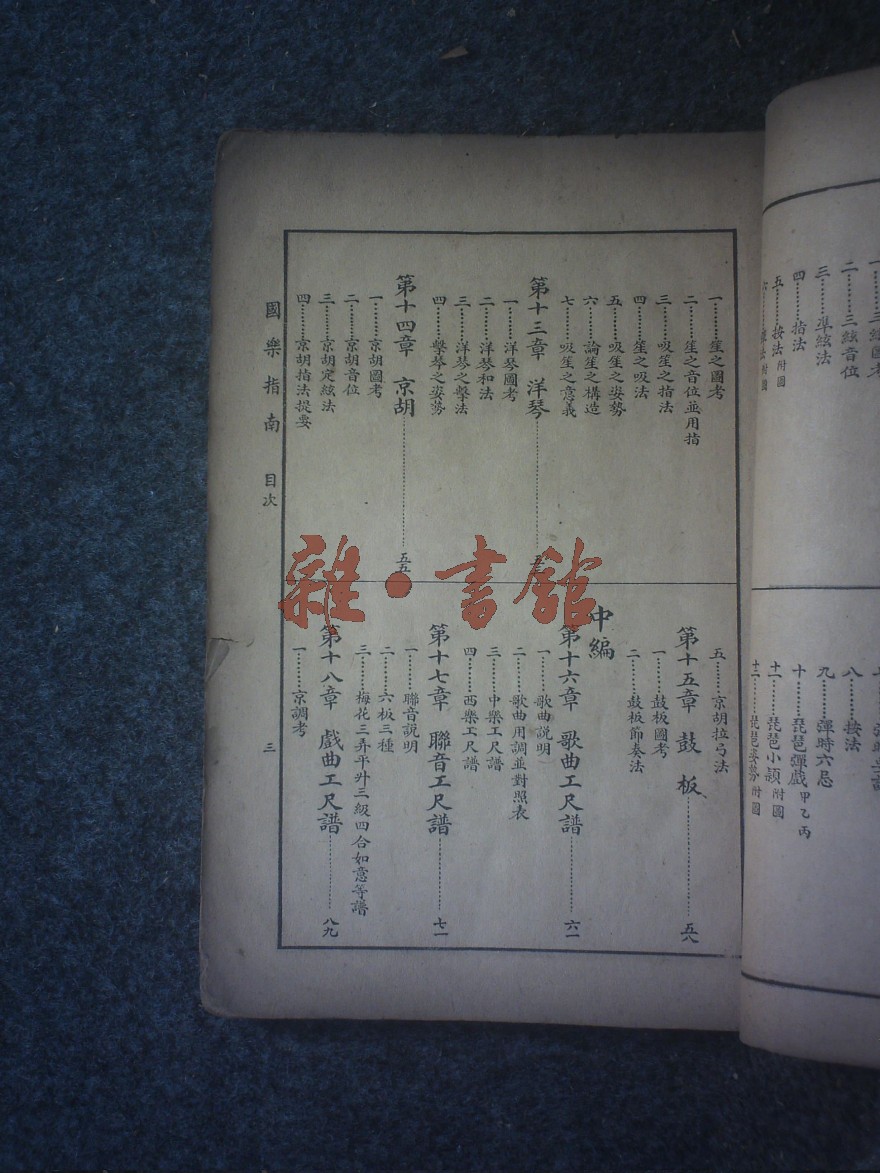 三絃圖考
二……三絃音位
三……準絃法
四……指法
五……按法 附圖
八……按法
九……彈時六忌
十……琵琶彈戲 甲乙丙
十一……琵琶小顆 附圖
十二……琵琶姿勢 附圖
一……笙之圖考
二……笙之音位並用指
三……吸笙之指法
四……笙之吸法
五……吸笙之姿勢
六……論笙之構造
七……吸笙之意義
第十三章 洋琴
一……洋琴圖考
二……洋琴和法
三……洋琴之擊法
四……擊琴之姿勢
第十四章 京胡……五五
一……京胡圖考
二……京胡音位
三……京胡定絃法
四……京胡指法提要
五……京胡拉弓法
第十五章 鼓板……五八
一……鼓板圖考
二……鼓板節奏法
中編
第十六章 歌曲工尺譜……六一
一……歌曲説明
二……歌曲用調並對照表
三……中樂工尺譜
四……西樂工尺譜
第十七章 聯音工尺譜……七一
一……聯音説明
二……六板三種
三……梅花三弄平升三級四合如意等譜
第十八章 戲曲工尺譜……八九
一……京調考
國樂指南 目次
三
雜·書館